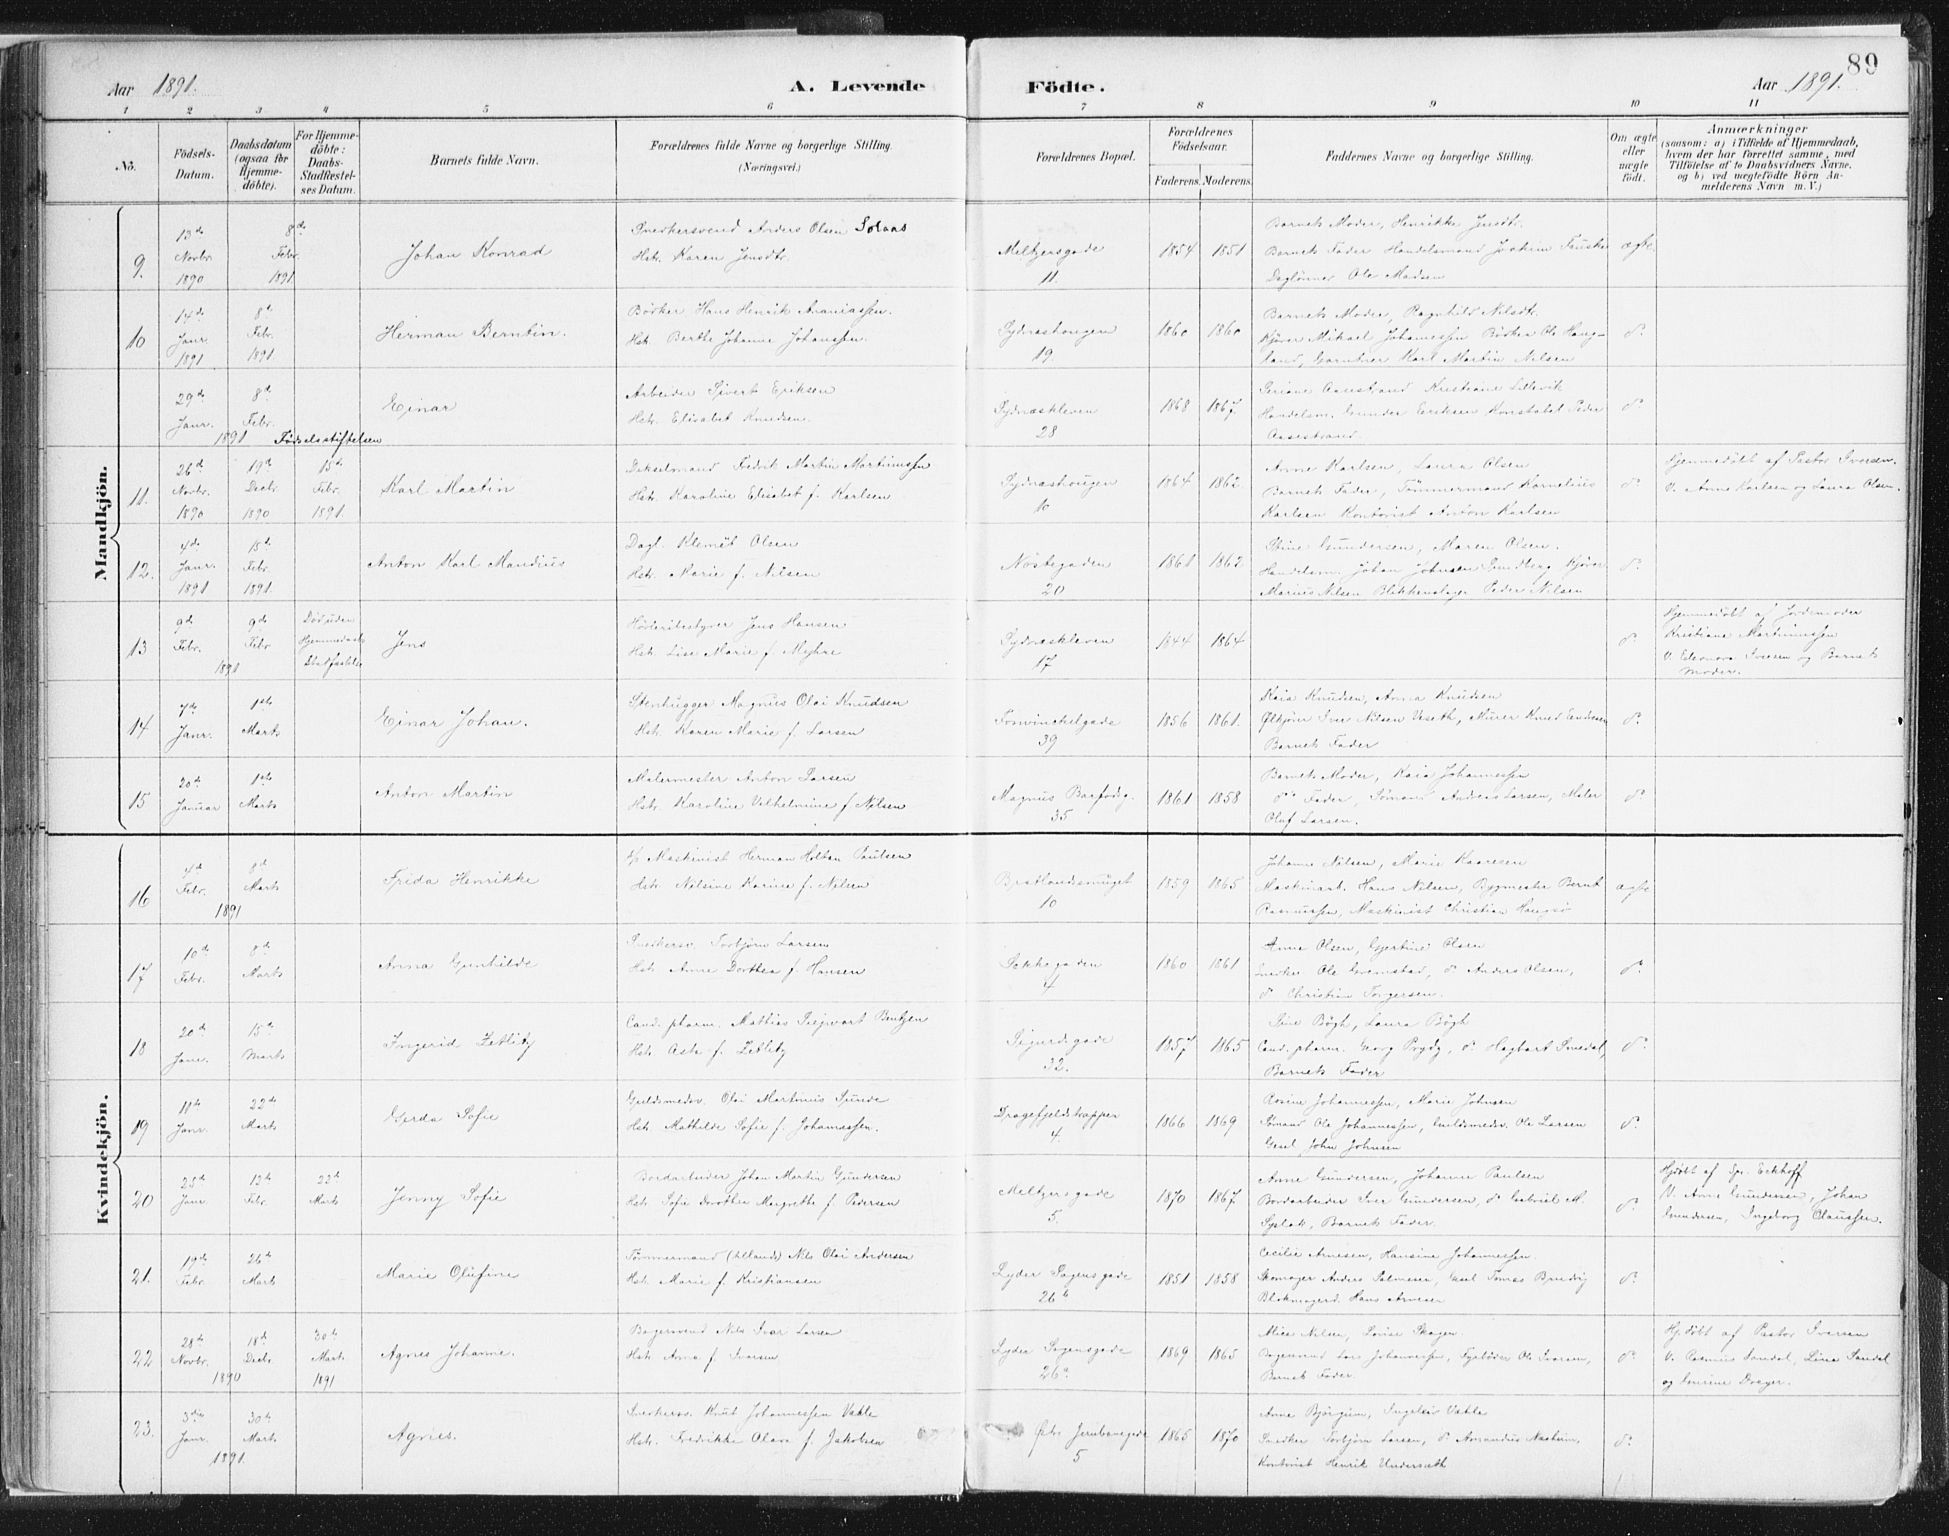 89
Aar 1891. A. Levende Födte. Aar 1891.
1 2 3 4 5 6 7 8 9 10 11
No.
Födsels-Datum.
Daabsdatum (ogsaa for Hjemmedöbte).
For Hjemmedöbte: Daabs-Stadfæstelses Datum.
Barnets fulde Navn.
Forældrenes fulde Navne og borgerlige Stilling. (Næringsvei.)
Forældrenes Bopæl.
Forældrenes Födselsaar.
Faderens. Moderens.
Faddernes Navne og borgerlige Stilling.
Om ægte eller uægte födt.
Anmærkninger (saasom: a) i Tilfælde af Hjemmedaab, hvem der har forrettet samme, med Tilföielse af to Daabsvidners Navne, og b) ved uægtefödte Börn Anmelderens Navn m. V.)
Mandkjön.
9. 13de Novbr. 1890 8de Febr. 1891 Johan Konrad
Snedkersvend Anders Olsen Solaas
Hst. Karen Jensdtr.
Meltzersgade 11. 1854 1851
Barnets Moder, Henrikke Jensdtr.
Barnets Fader Handelsmand Joakim Fauske
Daglönner Ole Madsen
ægte
10 14de Janr. 1891 8de Febr. 1891 Herman Berntin.
Bödker Hans Henrik Ananiassen.
Hst. Berthe Johanne Johanssen.
Sydnæshougen 19. 1860 1860
Barnets Moder, Ragnhild Nilsdtr.
Kjører Mikael Johannessen Bödker Ole Haug-
land, Gartner Karl Martin Nilsen
do
29de Janr. 8de Febr. 1891 Einar
Arbeider Sivert Eriksen
Hst. Elisabet Knudsen.
Sydnæskleven 28 1868 1867.
Seriane Aasestrand Kristiane Lillevik
Handelsm. Gunder Eriksen Konstabel Peder
Aasestrand.
do
Födselsstiftelsen
11. 26de Novbr. 1890 19de Decbr 1890 15de Febr. 1891. Karl Martin
Dekselmand Fedrik Martin Martinussen
Hst. Karoline Elisabet f. Karlsen
Sydnæshougen 10 1864 1862.
Anne Karlsen, Laura Olsen
Barnets Fader, Tömmermand Kornelius
Karlsen Kontorist Anton Karlsen
do
Hjemmedöbt af Pastor Iversen.
V. Anne Karlsen og Laura Olsen.
12. 4de Janr. 1891 15de Febr. 1891. Anton Karl Mandius
Dagl. Klemet Olsen
Hst. Marie f. Nilsen
Nöstegaden 20 1861 1862
Stine Gundersen, Maren Olsen.
Handelsm. Johan Johnsen Sundberg Kjører
Marius Nilsen Blikkenslager Peder Nilsen
do
13 9de Febr. 9de Febr 1891 Död uden Hjemmedaabs Stadfæstelse Jens
Høvleribestyrer Jens Hansen
Hst. Lise Marie f. Myhre
Sydnæskleven 17 1844 1864
do
Hjemmedöbt af Jordemoder
Kristiane Martinussen
V. Eleonora Iversen og Barnets
Moder.
14 7de Janr. 1ste Marts Einar Johan.
Stenhugger Magnus Olai Knudsen
Hst. Karen Marie f. Larsen
Fosvinckelgade 39 1856 1861.
Kaia Knudsen, Anna Knudsen
Ølkjører Iver Nilsen Veseth, Murer Knud Knudsen
Barnets Fader
do
15 20de Januar 1ste Marts Anton Martin
Malermester Anton Larsen
Hst. Karoline Vilhelmine f Nilsen
Magnus Barfodsg. 35 1861 1858
Barnets Moder, Kaia Johannessen
do Fader, Sömand Andreas Larsen, Maler
Oluf Larsen.
do
Kvindekjön.
16 4de Febr. 8de Marts 1891 Frida Henrikke
Maskinist Herman Holtan Paulsen
Hst. Nilsine Karine f. Nilsen
Bratlandssmuget 10 1859 1865
Johanne Nilsen, Marie Kaaresen
Maskinarb. Hans Nilsen, Bygmester Bernt
Rasmussen, Maskinist Christian Haugsö
ægte
17 10de Febr. 8de Marts Anna Gunhilde
Snedkersv. Torbjørn Larsen
Hst. Anne Dorthea f. Hansen
Sekkegaden 4 1860 1861
Anne Olsen, Gjertine Olsen
Snedker Ole Grimstad, do Anders Olsen,
do Christian Torgersen.
do
18 20de Janr. 15de Marts Ingerid Zetlitz
Cand. pharm. Mathias Siegwart Bentzen
Hst. Asta f. Zetlitz
Sigurdsgade 32. 1857 1865
Sine Bögh, Laura Bögh
Cand. pharm. Georg Prydz, do Hagbart Smedal,
Barnets Fader
do
19 10de Janr. 22de Marts Gerda Sofie
Guldsmedsv. Olai Martinius Sjursde
Hst. Mathilde Sofie f. Johannessen.
Dragefjeldstrapper 4. 1866 1869
Rosine Johannessen, Marie Johnsen
Sömand Ole Johannessen, Guldsmedsv. Ole Larsen
Gesel John Johnsen
do
20 25de Janr 12te Febr. 22de Marts Jenny Sofie
Bordarbeider Johan Martin Gundersen
Hst. Sofie Dorothea Margrethe f. Pedersen
Meltzersgade 5. 1870 1867.
Anne Gundersen, Johanne Paulsen
Bordarbeider Iver Gundersen, do Gabriel M.
Barnets Fader.
do
Hjdöbt af Spr. Eckhoff
V. Anne Gundersen, Johan
Gundersen, Ingeborg Claussen.
21. 19de Febr. 26de Marts Marie Olufine
Tömmermand Nils Olai Andersen
Hst. Marie f. Kristiansen
Lyder Sagensgade 26b 1851 1858
Cecilie Arnesen, Hansine Johannessen.
Skomager Anders Salmesen, Gesel Tomas
Blokmagersv. Hans Arnesen
do
22 28de Novbr. 18de Decbr. 1890 30te Mart. 1891 Agnes Johanne.
Bagersvend Nils Ivar Larsen
Hst. Anna f. Iversen
Lyder Sagensgade 26a. 1869 1865
Alice Nilsen, Lovise Skagen
Bagersvend Lars Johannessen, Ole Iversen,
Barnets Fader.
do
Hj.döbt af Pastor Iversen
V. Sandal, Lina Sandal
og Dreyer.
23. 3die Janr. 30te Mart. 1891. Agnes.
Snedkersv. Knut Johannessen Vakle
Hst. Fredrikke Olava f. Jakobsen
Øvre Jernbanegade 5 1865 1870
Anne Björgum, Ingeleiv Vakle
Snedker Torbjörn Larsen, do Amandus Nastum,
Kontorist Henrik Undersæth
do